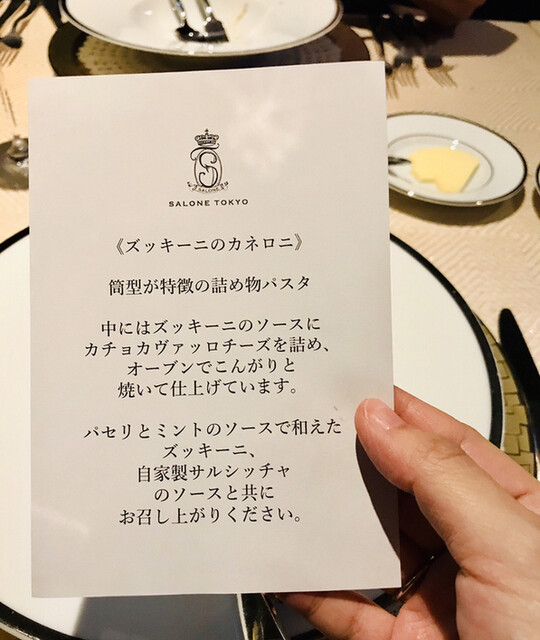 SALONE
SALONE TOKYO
《ズッキーニのカネロニ》
筒型が特徴の詰め物パスタ
中にはズッキーニのソースに
カチョカヴァッロチーズを詰め、
オーブンでこんがりと
焼いて仕上げています。
パセリとミントのソースで和えた
ズッキーニ、
自家製サルシッチャ
のソースと共に
お召し上がりください。